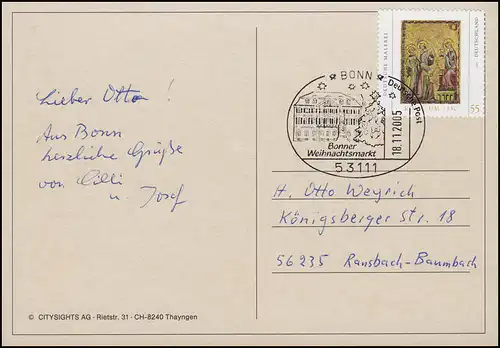 Lieber Otto !
Aus Bonn
herzliche Grüße
von Cilli
u. Josef
© CITYSIGHTS AG · Rietstr. 31 · CH-8240 Thayngen
DEUTSCHLAND
55
BONN
Deutsche Post
18.11.2005
Bonner
Weihnachtsmarkt
53111
H. Otto Weyrich
Königsberger Str. 18
56235 Ransbach-Baumbach